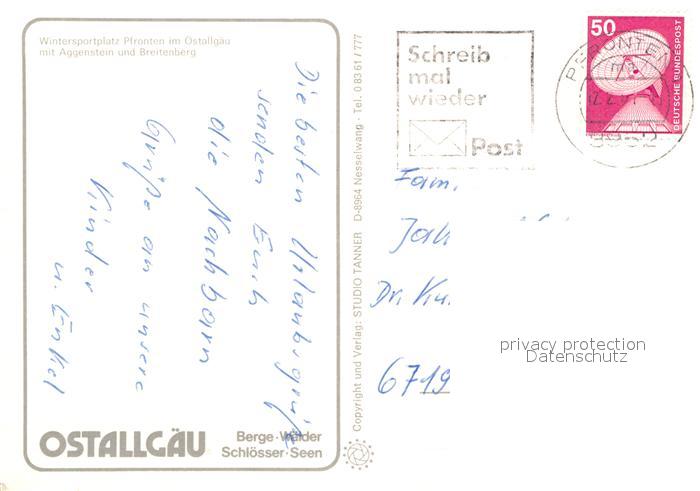 Wintersportplatz Pfronten im Ostallgäu
mit Aggenstein und Breitenberg
Die besten Urlaubsgrüße
senden Euch
die Nachbarn
Grüße an unsere
Kinder
u. Enkel
OSTALLGÄU
Berge·Wälder
Schlösser·Seen
Copyright und Verlag: STUDIO TANNER D-8964 Nesselwang · Tel. 0 83 61 / 777
Schreib
mal
wieder
Post
PFRONTEN
8962
50
DEUTSCHE BUNDESPOST
Fam.
Dr.
6719
privacy protection
Datenschutz